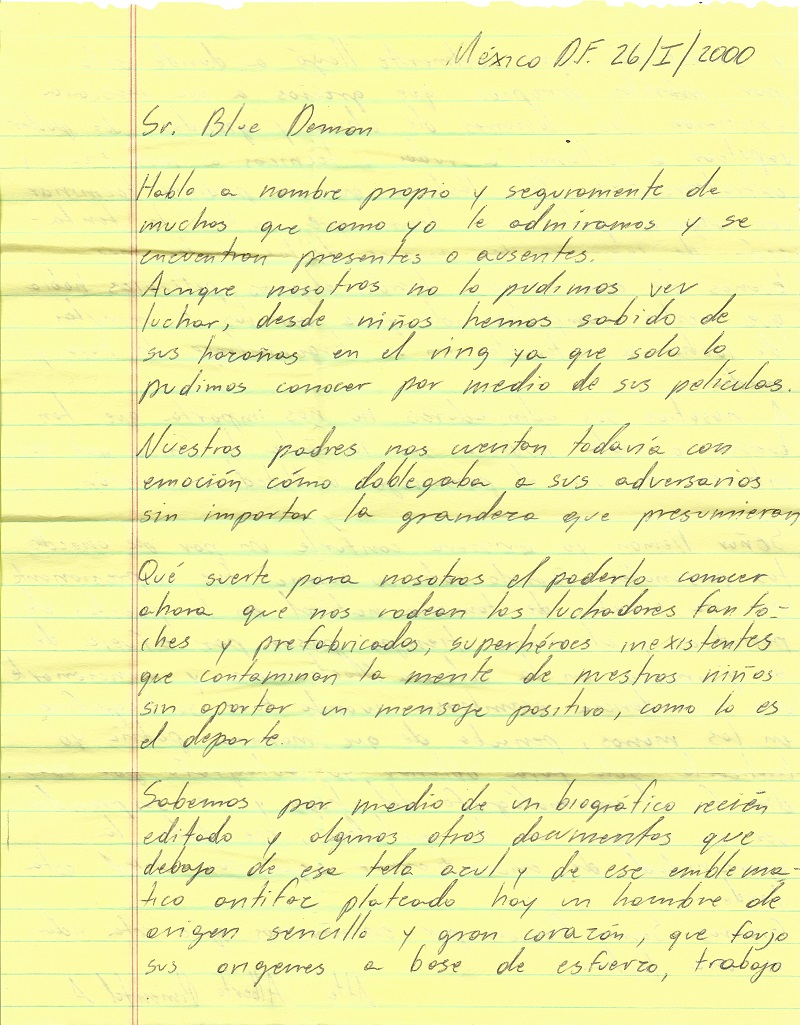 México D.F. 26/I/2000
Sr. Blue Demon
Hablo a nombre propio y seguramente de
muchos que como yo le admiramos y se
encuentran presentes o ausentes.
Aunque nosotros no lo pudimos ver
luchar, desde niños hemos sabido de
sus hazañas en el ring ya que solo lo
pudimos conocer por medio de sus películas.
Nuestros padres nos cuentan todavía con
emoción cómo doblegaba a sus adversarios
sin importar la grandeza que presumieran
Qué suerte para nosotros el poderlo conocer
ahora que nos rodean los luchadores fanto-
ches y prefabricados, superhéroes inexistentes
que contaminan la mente de nuestros niños
sin aportar un mensaje positivo, como lo es
el deporte.
Sabemos por medio de un biográfico recién
editado y algunos otros documentos que
debajo de esa tela azul y de ese emblemá-
tico antifaz plateado hay un hombre de
origen sencillo y gran corazón, que forjo
sus origenes a base de esfuerzo, trabajo